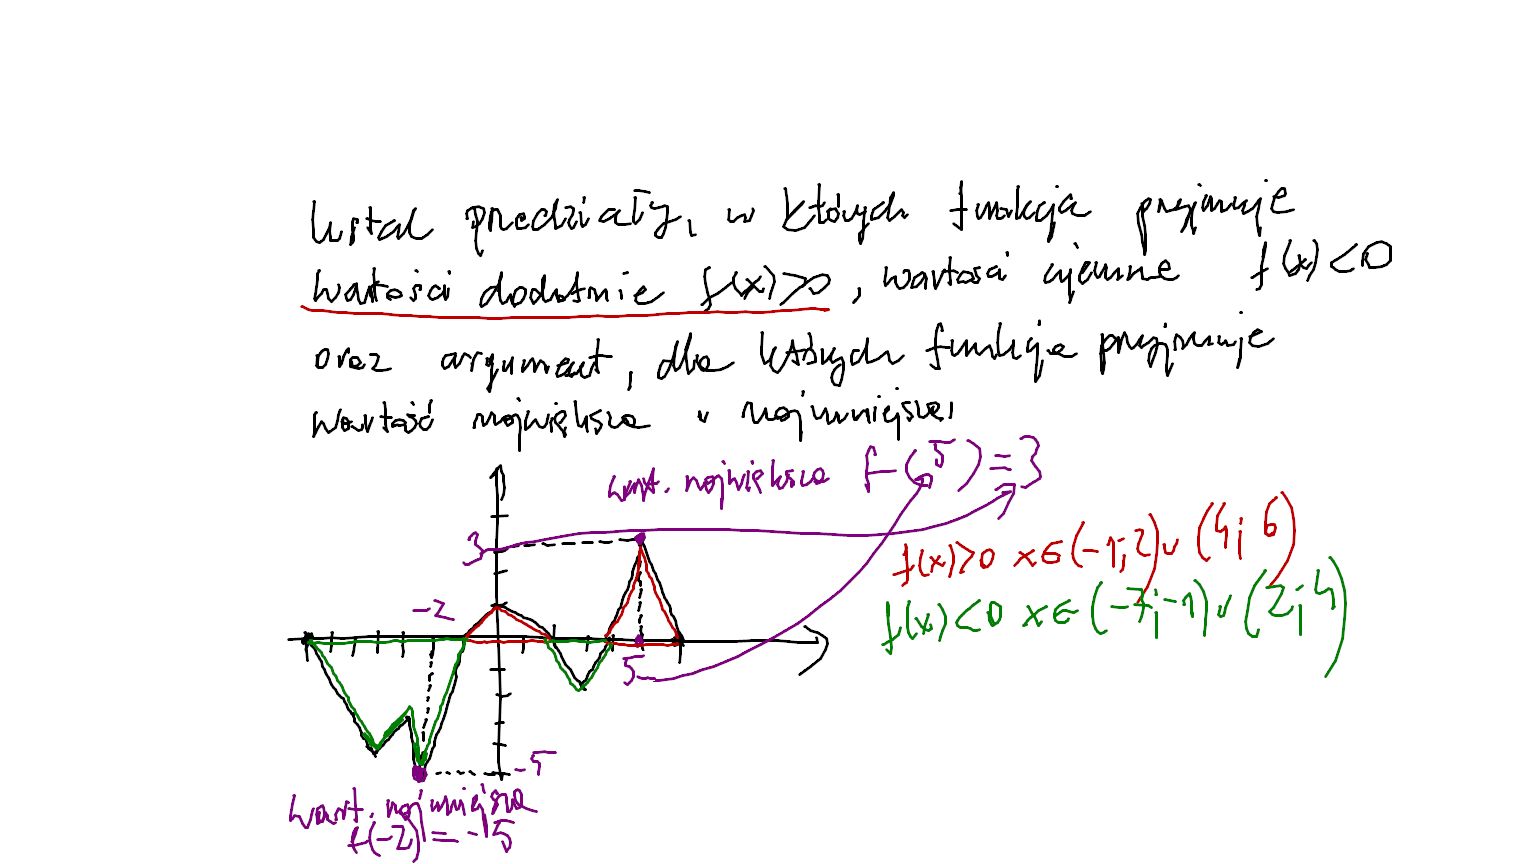 Ustal przedziały, w których funkcja przyjmuje
wartości dodatnie f(x)>0, wartości ujemne f(x)<0
oraz argument, dla których funkcja przyjmuje
wartość największa i najmniejsza.
wart. największa f(5)=3
3
f(x)>0 x∈(-1;2)∪(4;6)
-2
f(x)<0 x∈(-7;-1)∪(2;4)
5
-5
wart. najmniejsza
f(-2)=-5